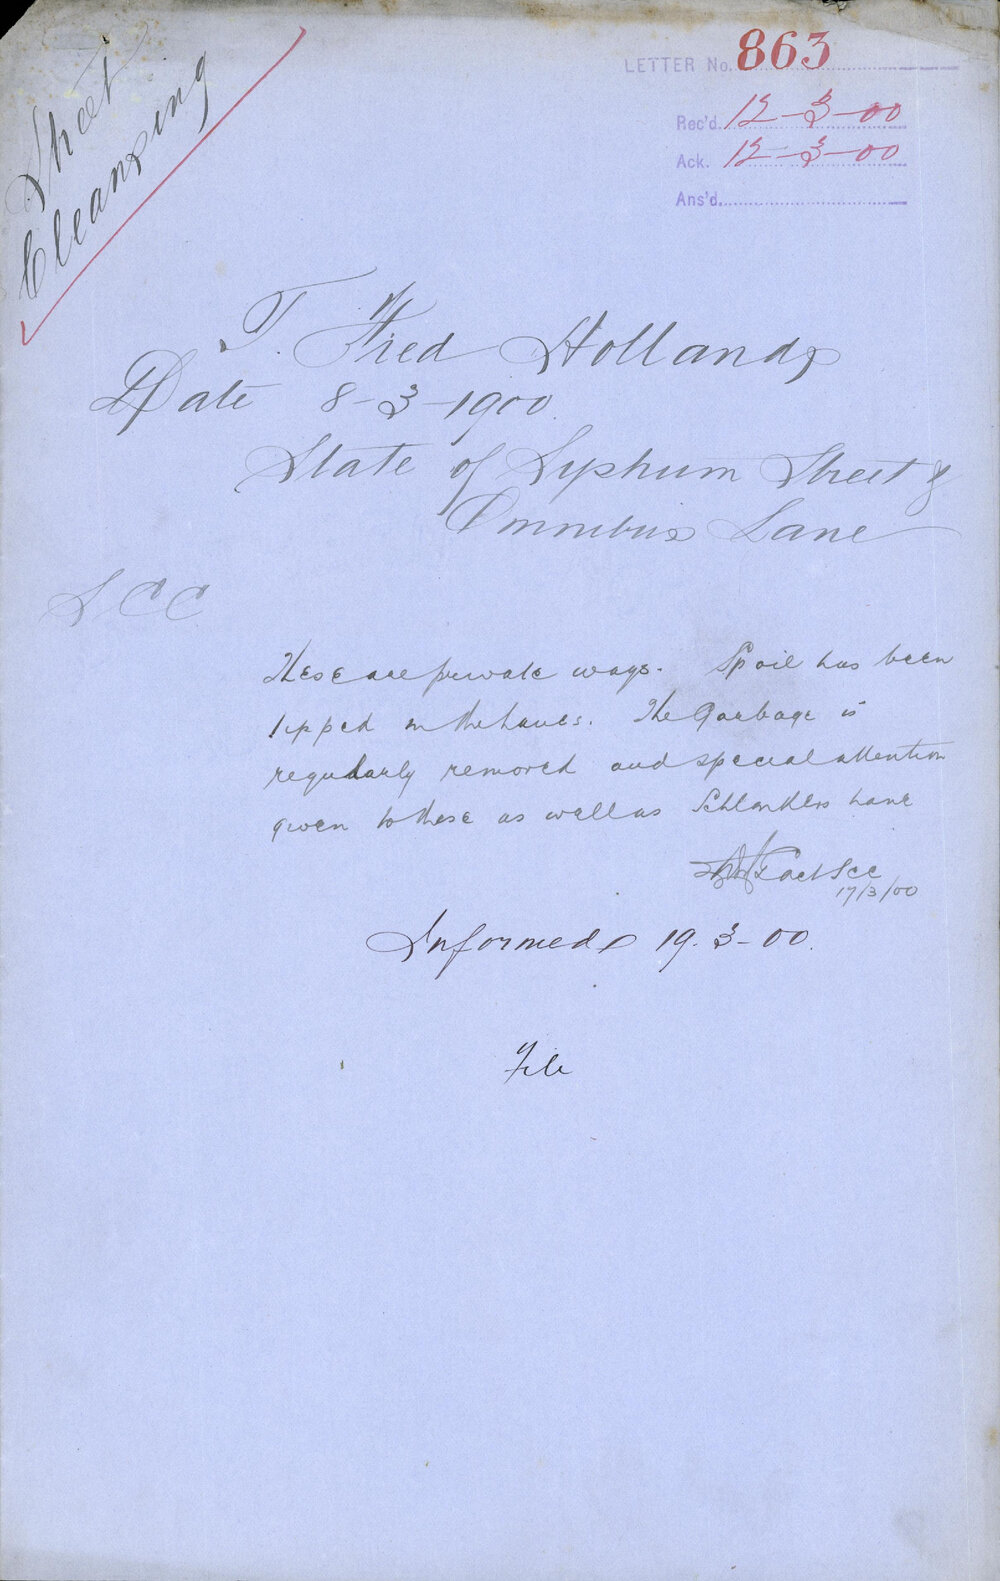 Street
Cleansing
LETTER No. 863
Rec'd. 12-3-00
Ack. 12-3-00
Ans'd.
T. Fred Holland
Date 8-3-1900
State of Syphum Street &
Omnibus Lane
SCC
These are private ways. Spoil has been
tipped in the lanes. The Garbage is
regularly removed and special attention
given to these as well as Lane
SCC
17/3/00
Informed 19.3-00.
File